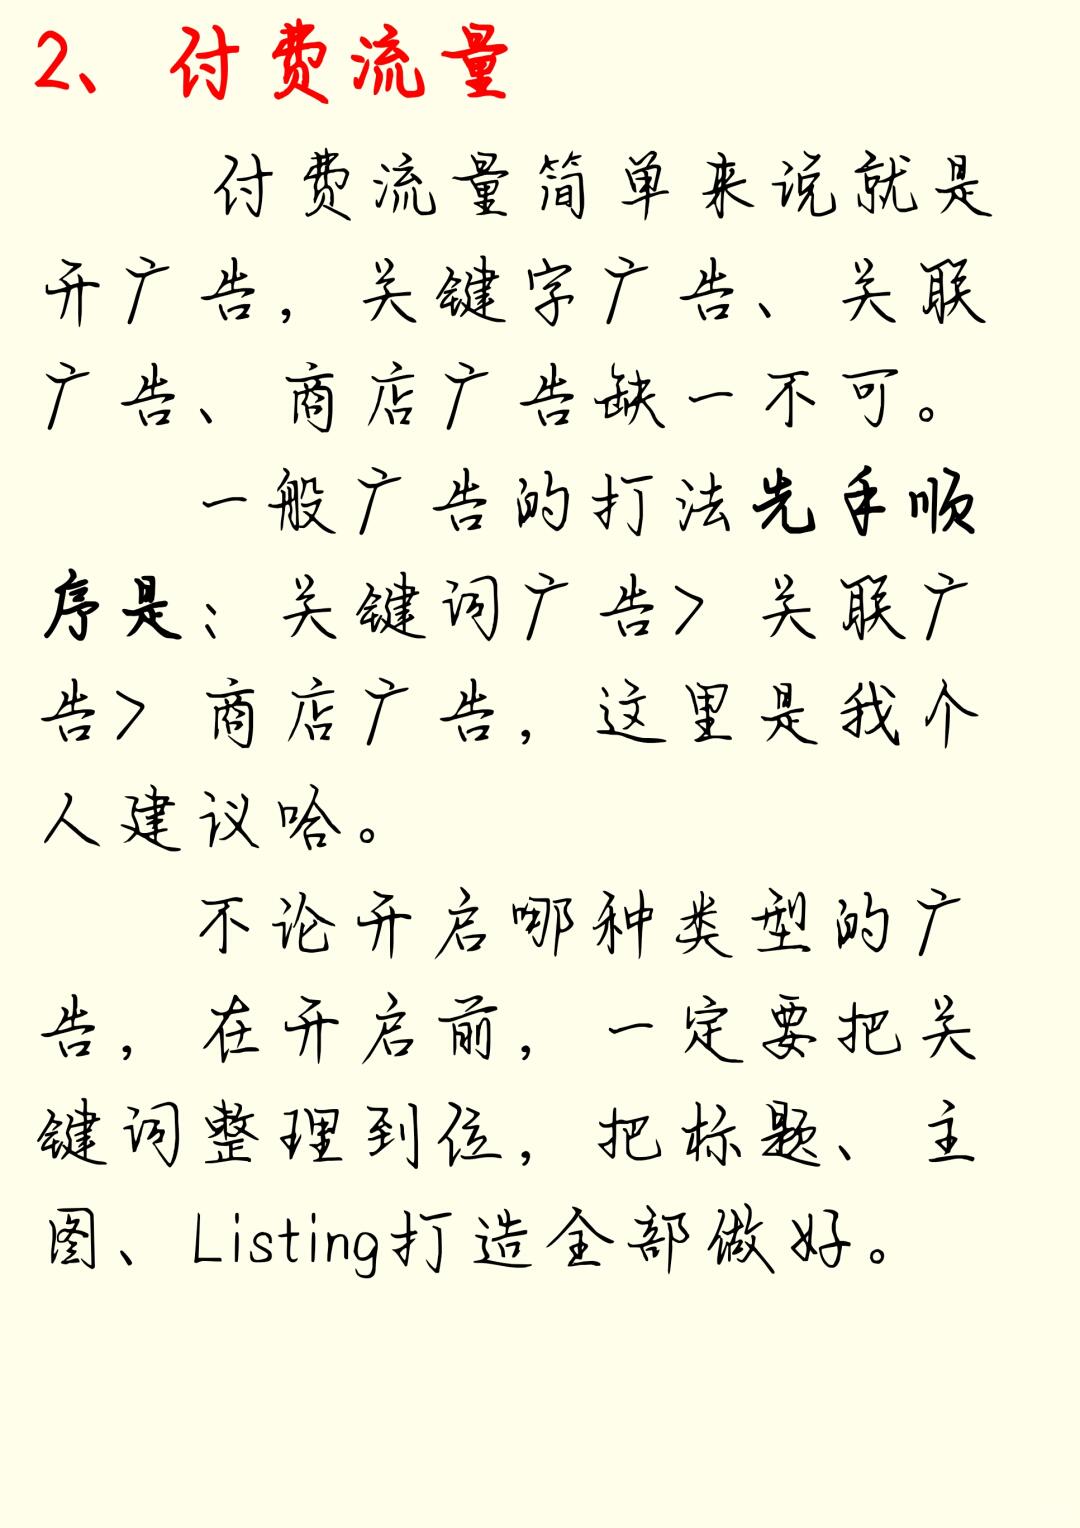 2、付费流量
付费流量简单来说就是
开广告，关键字广告、关联
广告、商店广告缺一不可。
一般广告的打法先手顺
序是：关键词广告>关联广
告>商店广告，这里是我个
人建议哈。
不论开启哪种类型的广
告，在开启前，一定要把关
键词整理到位，把标题、主
图、Listing打造全部做好。